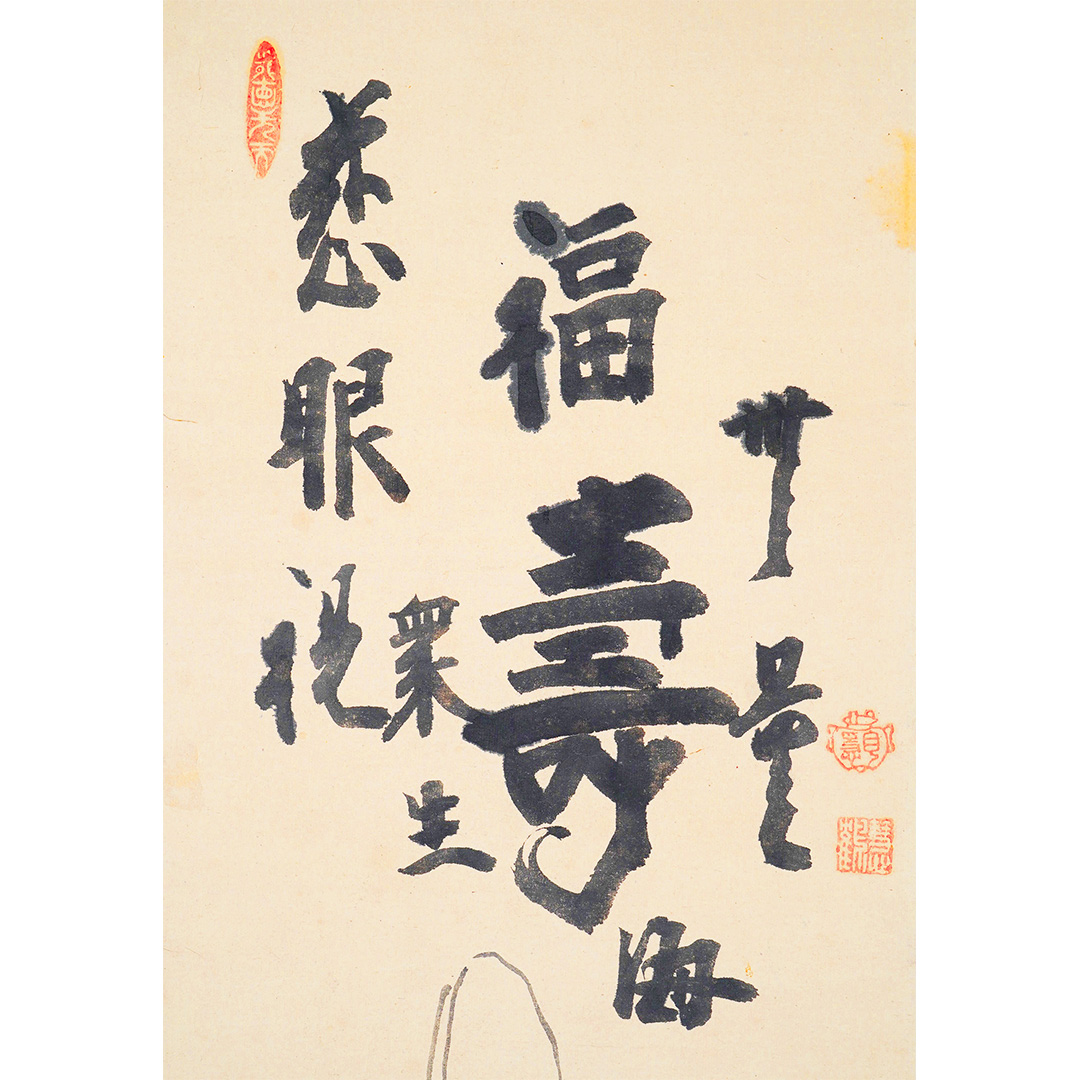 慈眼視
衆生
福壽海
無量